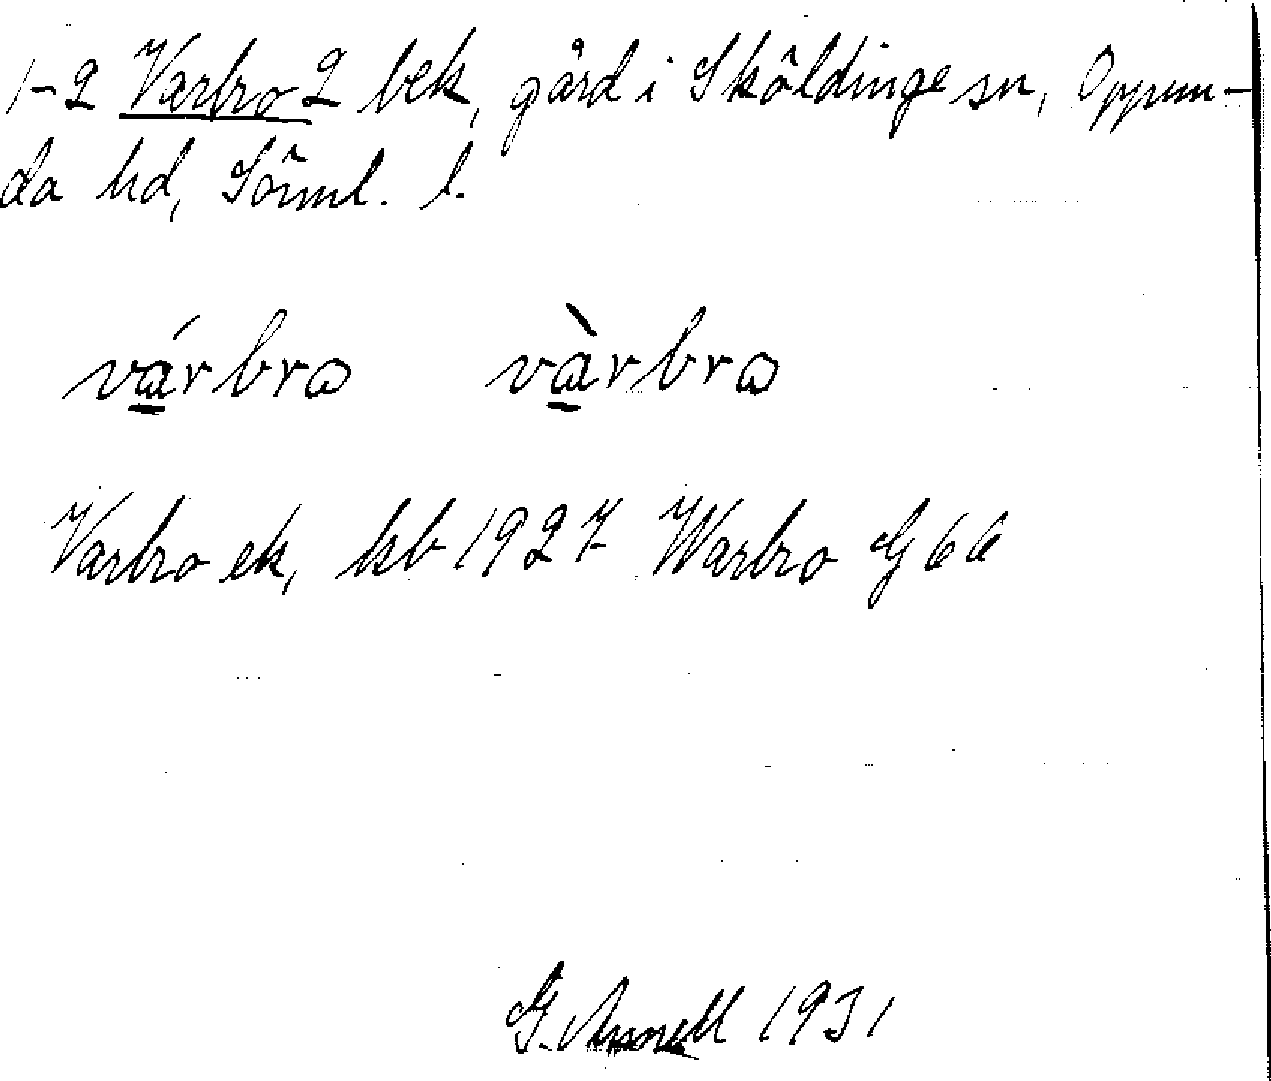 1-2 Varbro 2 bek, gård i Sköldinge sn, Oppun-
da hd, Sörml. l.
várbrα vàrbrα
Varbro ek, kb 1927 Warbro G 66
G. 1931